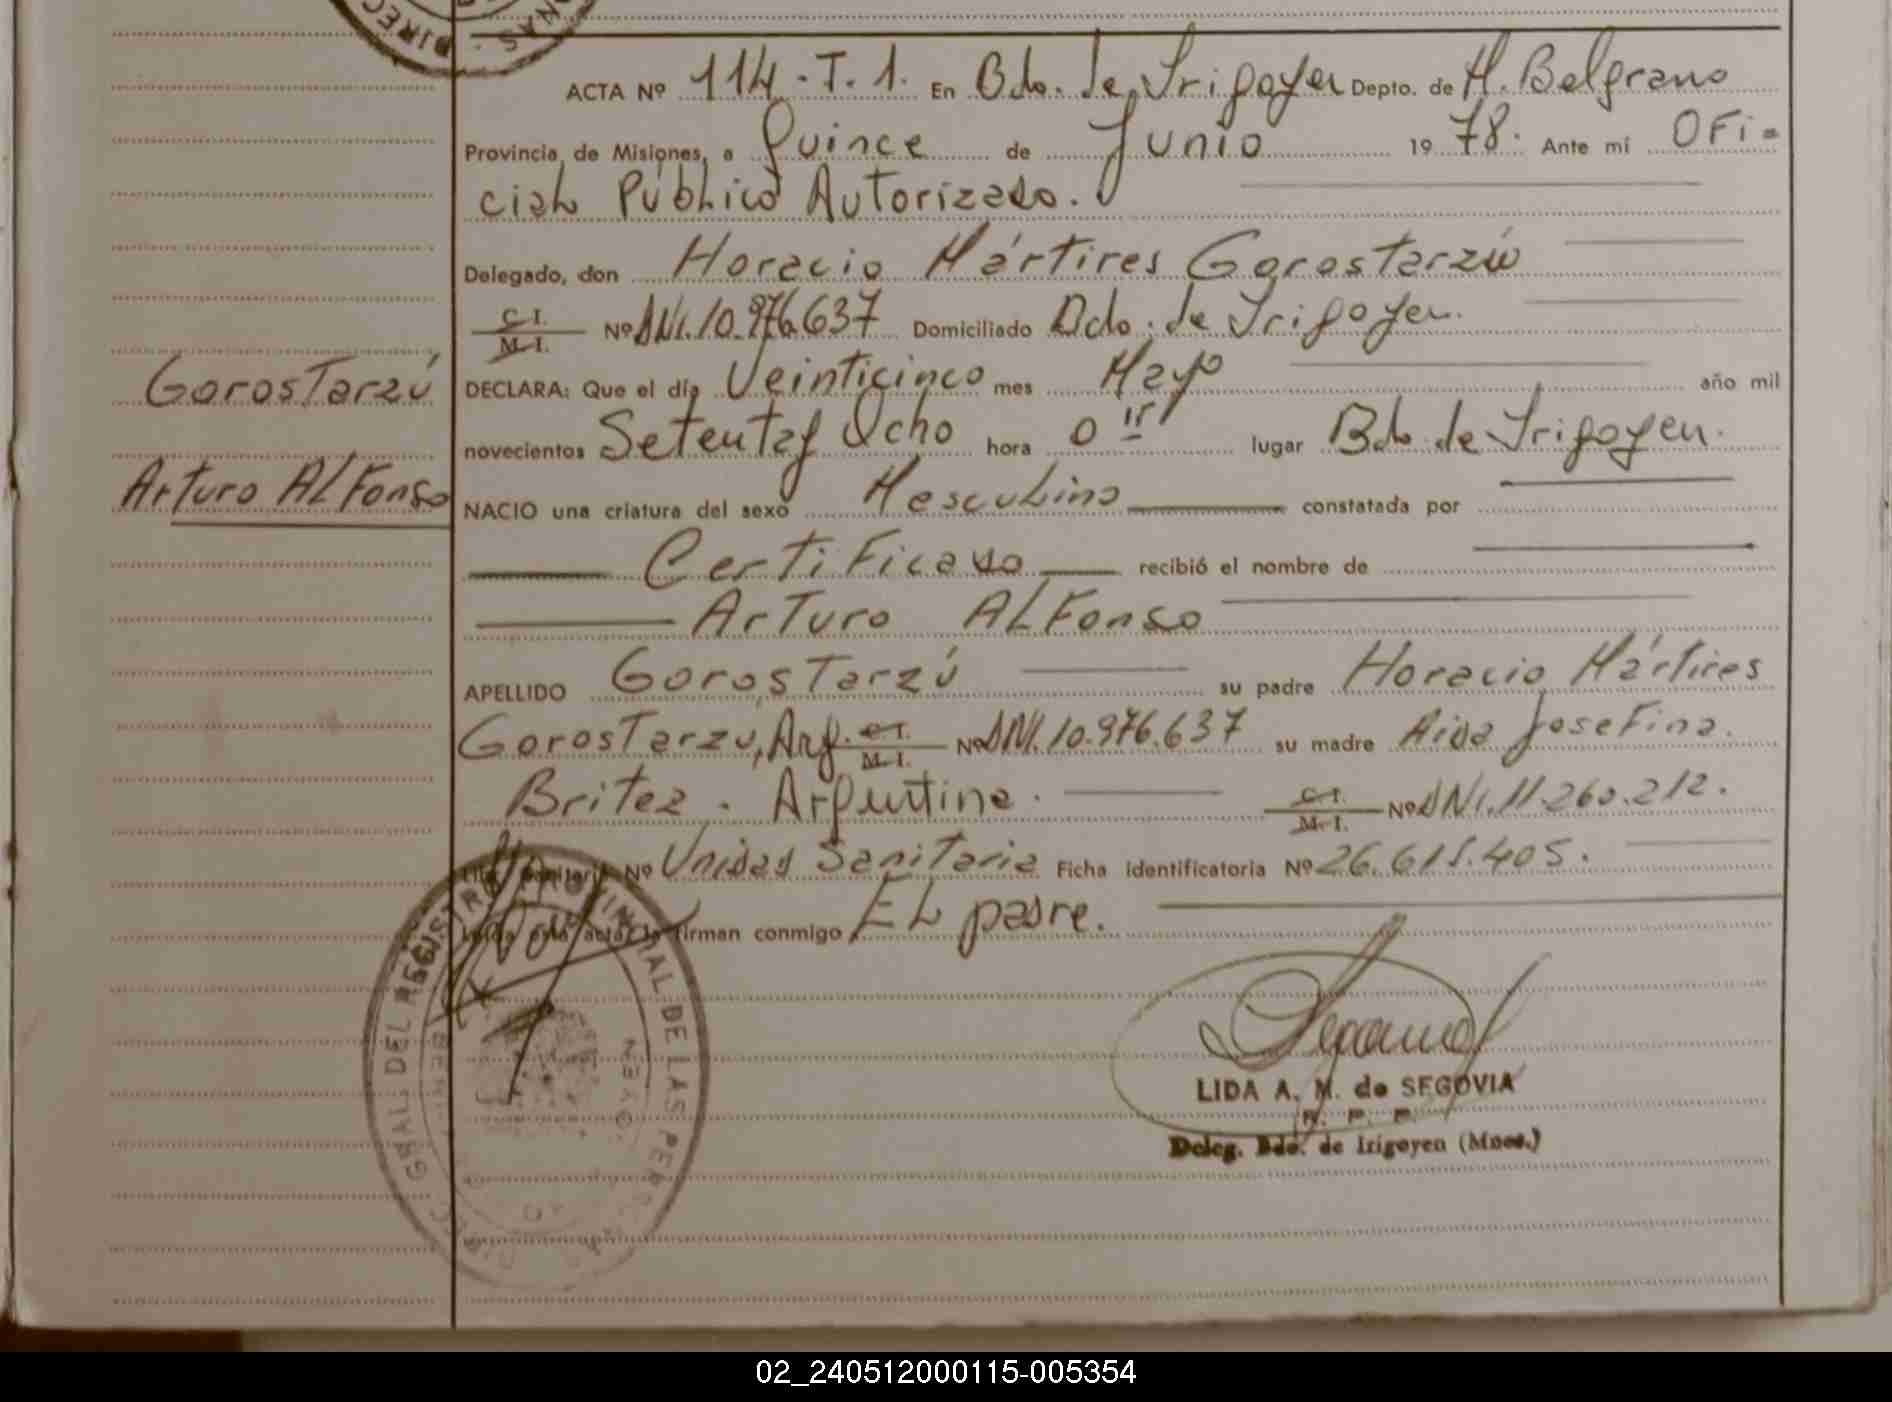 ACTA Nº 114 - T. 1. En Bdo. de Irigoyen Depto. de M. Belgrano
Provincia de Misiones, a Quince de Junio 1978. Ante mí OFi=
ciaL PúbLico Autorizado.
Delegado, don Horacio Mártires Gorostarzú
C. I.
M. I.
Nº DNI. 10.976.637 Domiciliado Bdo. de Irigoyen.
Gorostarzú
DECLARA: Que el día Veinticinco mes Mayo año mil
novecientos Setenta y Ocho hora 0 lugar Bdo de Irigoyen.
Arturo ALFonso
NACIO una criatura del sexo MascuLino constatada por
CertiFicado recibió el nombre de
Arturo ALFonso
APELLIDO Gorostarzú su padre Horacio Mártires
Gorostarzu, Arg. C. I.
M. I.
Nº DNI. 10.976.637 su madre Aida JoseFina.
Britez. Argentina. C. I.
M. I.
Nº DNI. 11.260.212.
Lib. Sanitaria Nº Unidad Sanitaria Ficha identificatoria Nº 26.615.405.
Leída esta acta la firman conmigo EL padre.
DIREC. GRAL. DEL REGISTRO PROVINCIAL DE LAS PERSONAS
LIDA A. M. de SEGOVIA
Deleg. Bdo. de Irigoyen (Mnes.)
02_240512000115-005354